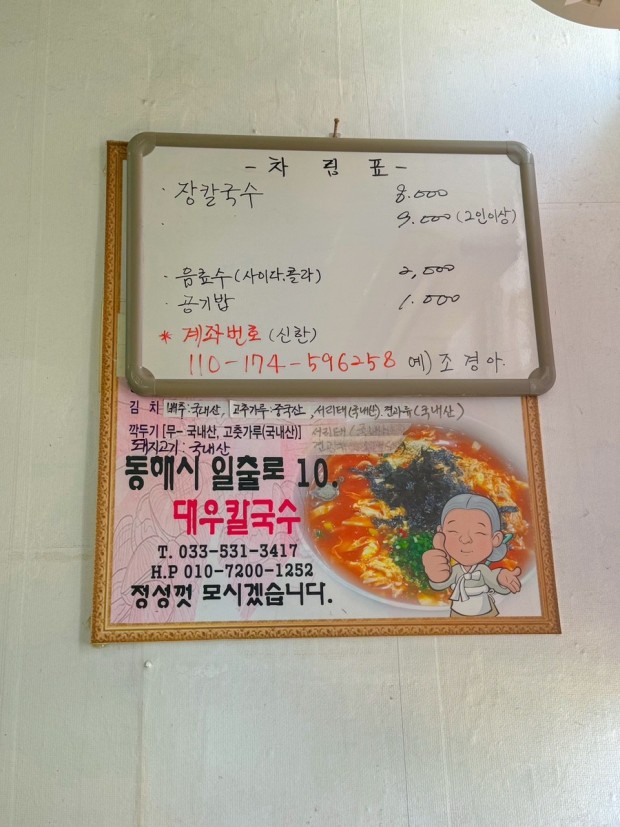 - 차 림 표 -
· 장칼국수 8.000
· 9.000 (2인이상)
· 음료수 (사이다.콜라) 2,500
· 공기밥 1.000
* 계좌번호 (신한)
110-174-596258 예) 조경아.
김 치 배추:국내산, 고추가루:중국산, 서리태(국내산).견과류(국내산)
깍두기 [무- 국내산, 고춧가루(국내산)] 서리태(국내산)
돼지고기: 국내산
동해시 일출로 10.
대우칼국수
T. 033-531-3417
H.P 010-7200-1252
정성껏 모시겠습니다.